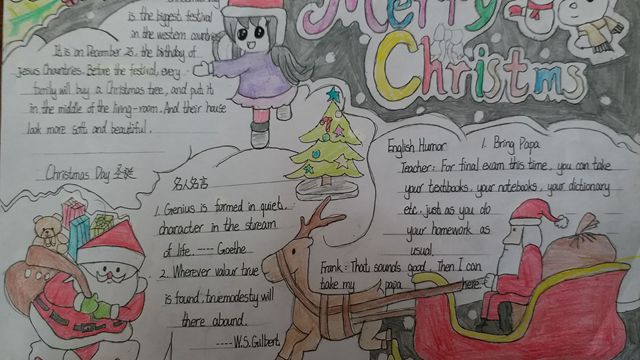 is the biggest festival
in the western countries
It is on December 25. the birthday of
Jesus Chountries. Before the festival, every
family will buy a Christmas tree, and put it
in the middle of the living-room. And their house
look more soft and beautiful.
Christmas Day 圣诞
名人名言
1. Genius is formed in quiet,
character in the stream
of life. ---- Goethe
2. Wherever valour true
is found, truemodesty will
there abound.
----W.S.Gilbert
Merry
Christms
English Humor 1. Bring Papa
Teacher: For final exam this time, you can take
your textbooks, your notebooks, your dictionary
etc. just as you do
your homework as
usual.
Frank: That sounds good. Then I can
take my papa here.